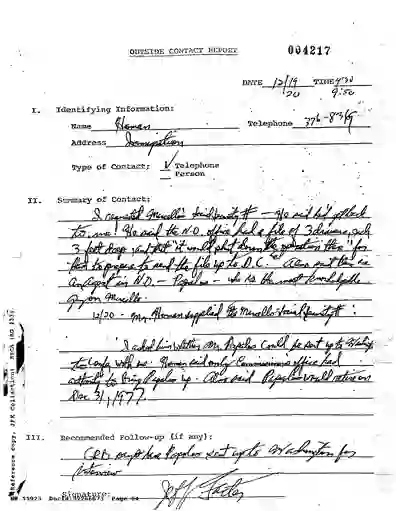 OUTSIDE CONTACT REPORT
004217
DATE 12/19 TIME 4:30
20 9:50
I. Identifying Information:
Name Homan Telephone 376-8369
Address Immigration
Type of Contact: ✓ Telephone
Person
II. Summary of Contact:
I requested Marcello's — He said he'd get back
to me. He said the N.O. office had a file of 3 drawers, each
3 feet deep, and that "it would shut down the operation there" for
them to prepare to send the file up to D.C. Also said there is
an agent in N.O. — Papalos — who is the most knowledgable
guy on Marcello.
12/20 - Mr. Homan supplied the Marcello :
I asked him whether Mr. Papalos could be sent up to Wash
to confer with us. Homan said only Commissioner's office had
authority to bring Papalos up. Also said Papalos would retire on
Dec. 31, 1977.
III. Recommended Follow-up (if any):
Papalos sent up to Washington for
interview
Signature:
Reference copy, JFK Collection: HSCA (RG 233)
Page 84